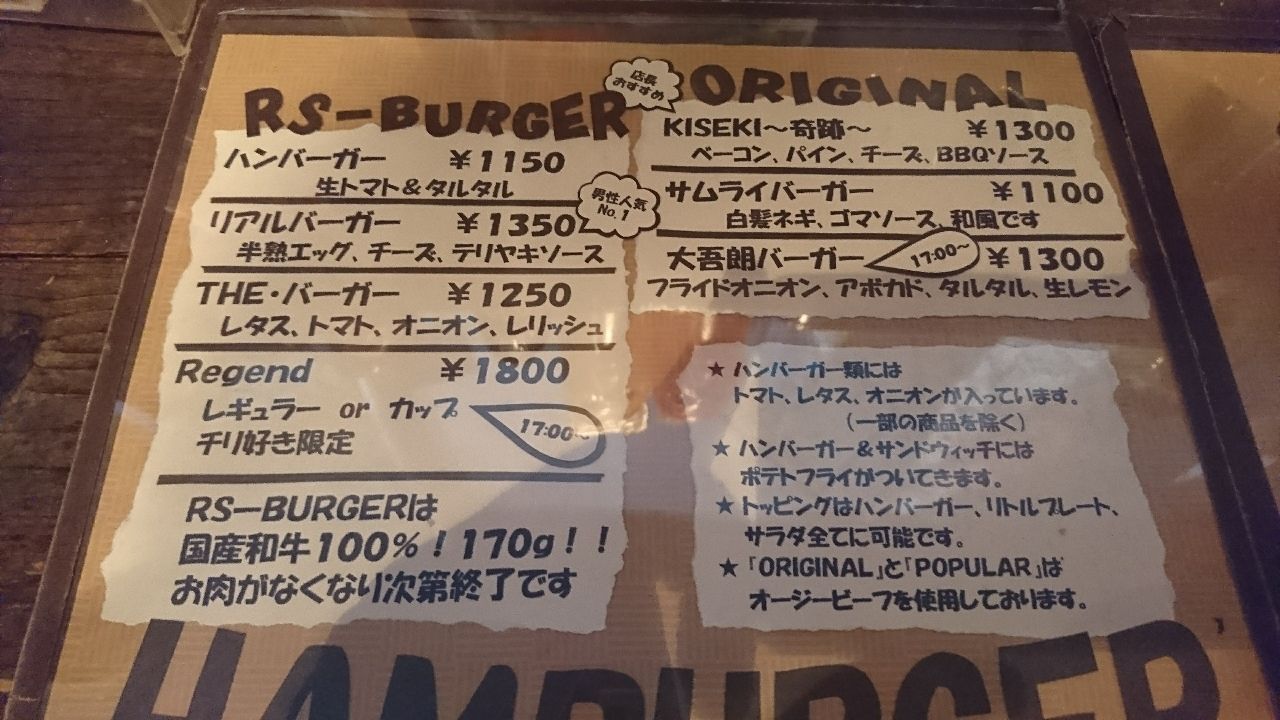 RS-BURGER
ハンバーガー ￥1150
生トマト＆タルタル
男性人気
No.1
リアルバーガー ￥1350
半熟エッグ、チーズ、テリヤキソース
THE・バーガー ￥1250
レタス、トマト、オニオン、レリッシュ
Regend ￥1800
レギュラー or カップ
チリ好き限定
17:00〜
RS-BURGERは
国産和牛100%！170g！！
お肉がなくなり次第終了です
店長
おすすめ
ORIGINAL
KISEKI〜奇跡〜 ￥1300
ベーコン、パイン、チーズ、BBQソース
サムライバーガー ￥1100
白髪ネギ、ゴマソース、和風です
大吾朗バーガー 17:00〜 ￥1300
フライドオニオン、アボカド、タルタル、生レモン
★ ハンバーガー類には
トマト、レタス、オニオンが入っています。
（一部の商品を除く）
★ ハンバーガー＆サンドウィッチには
ポテトフライがついてきます。
★ トッピングはハンバーガー、リトルプレート、
サラダ全てに可能です。
★「ORIGINAL」と「POPULAR」は
オージービーフを使用しております。
HAMBURGER